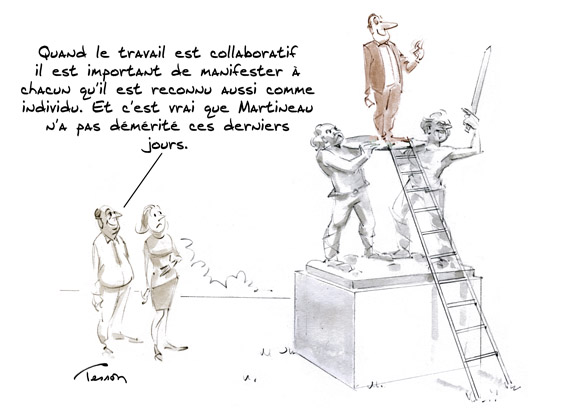 Quand le travail est collaboratif
il est important de manifester à
chacun qu'il est reconnu aussi comme
individu. Et c'est vrai que Martineau
n'a pas démérité ces derniers
jours.
Tesson